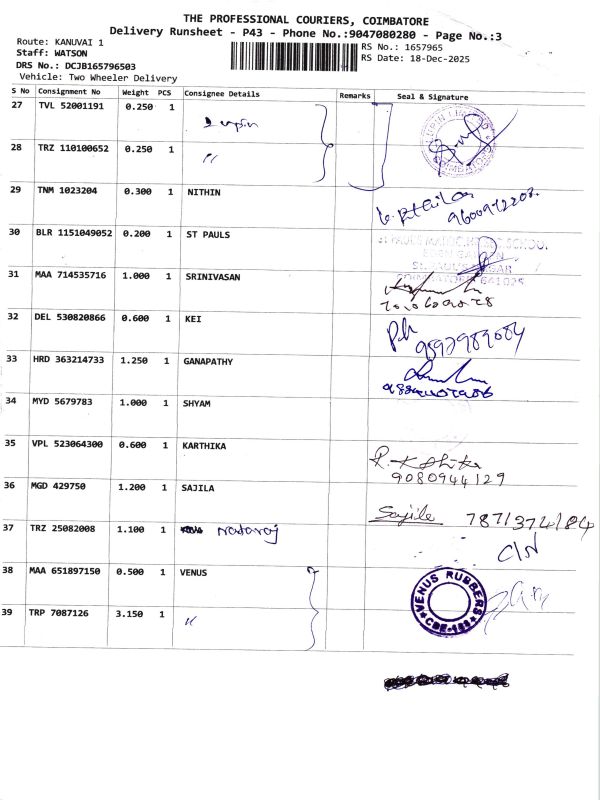 THE PROFESSIONAL COURIERS, COIMBATORE
Delivery Runsheet - P43 - Phone No.:9047080280 - Page No.:3
Route: KANUVAI 1
RS No.: 1657965
Staff: WATSON
RS Date: 18-Dec-2025
DRS No.: DCJB165796503
Vehicle: Two Wheeler Delivery
S No Consignment No Weight PCS Consignee Details Remarks Seal & Signature
27 TVL 52001191 0.250 1 Lupin
28 TRZ 110100652 0.250 1 "
29 TNM 1023204 0.300 1 NITHIN
30 BLR 1151049052 0.200 1 ST PAULS
31 MAA 714535716 1.000 1 SRINIVASAN
32 DEL 530820866 0.600 1 KEI
9892989084
33 HRD 363214733 1.250 1 GANAPATHY
34 MYD 5679783 1.000 1 SHYAM
35 VPL 523064300 0.600 1 KARTHIKA
9080944129
36 MGD 429750 1.200 1 SAJILA
Sajile 7871374184
37 TRZ 25082008 1.100 1 Nataraj
C/N
38 MAA 651897150 0.500 1 VENUS
VENUS RUBBERS
39 TRP 7087126 3.150 1 "